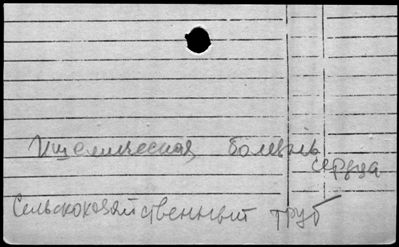 Ишемическая болезнь
сердца
Сельскохозяйственный труд